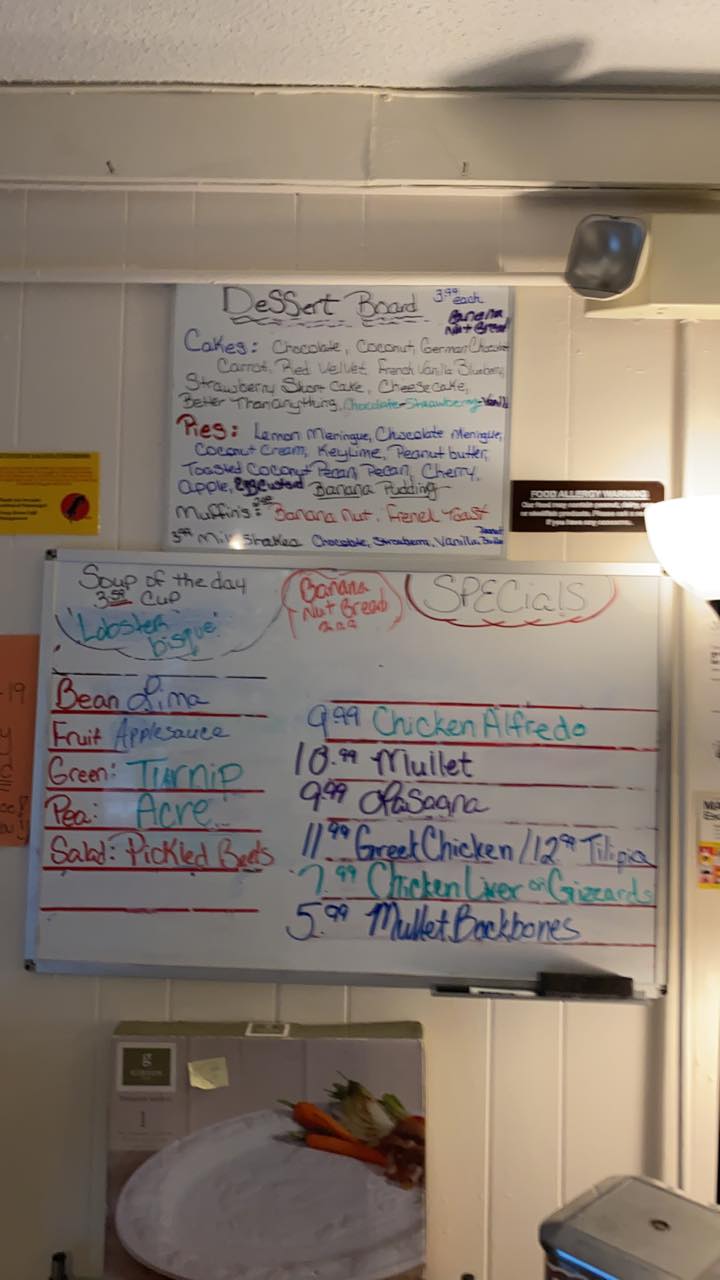 DeSSert Board 3.99 each
Banana
Nut Bread
Cakes: Chocolate, Coconut, German Chocolate
Carrot, Red Velvet, French Vanilla Blueberry
Strawberry Short Cake, Cheesecake,
Better Than anything, Chocolate-Strawberry-Vanilla
Pies: Lemon Meringue, Chocolate Meringue,
Coconut Cream, Keylime, Peanut butter,
Toasted Coconut Pecan, Pecan, Cherry,
Apple, Egg Custard Banana Pudding
Muffin's: Banana Nut, French Toast
3.99 Milkshakes Chocolate, Strawberry, Vanilla,
FOOD ALLERGY WARNING
if you have any concerns.
Soup of the day
3.59 Cup
'Lobster
bisque'
Banana
Nut Bread
SPECialS
Bean Lima
Fruit Applesauce
Green: Turnip
Pea: Acre
Salad: Pickled Beets
9.99 Chicken Alfredo
10.99 Mullet
9.99 LaSagna
11.99 Greek Chicken / 12.99 Tilipia
7.99 Chicken Liver or Gizzards
5.99 Mullet Backbones
-19
g
1